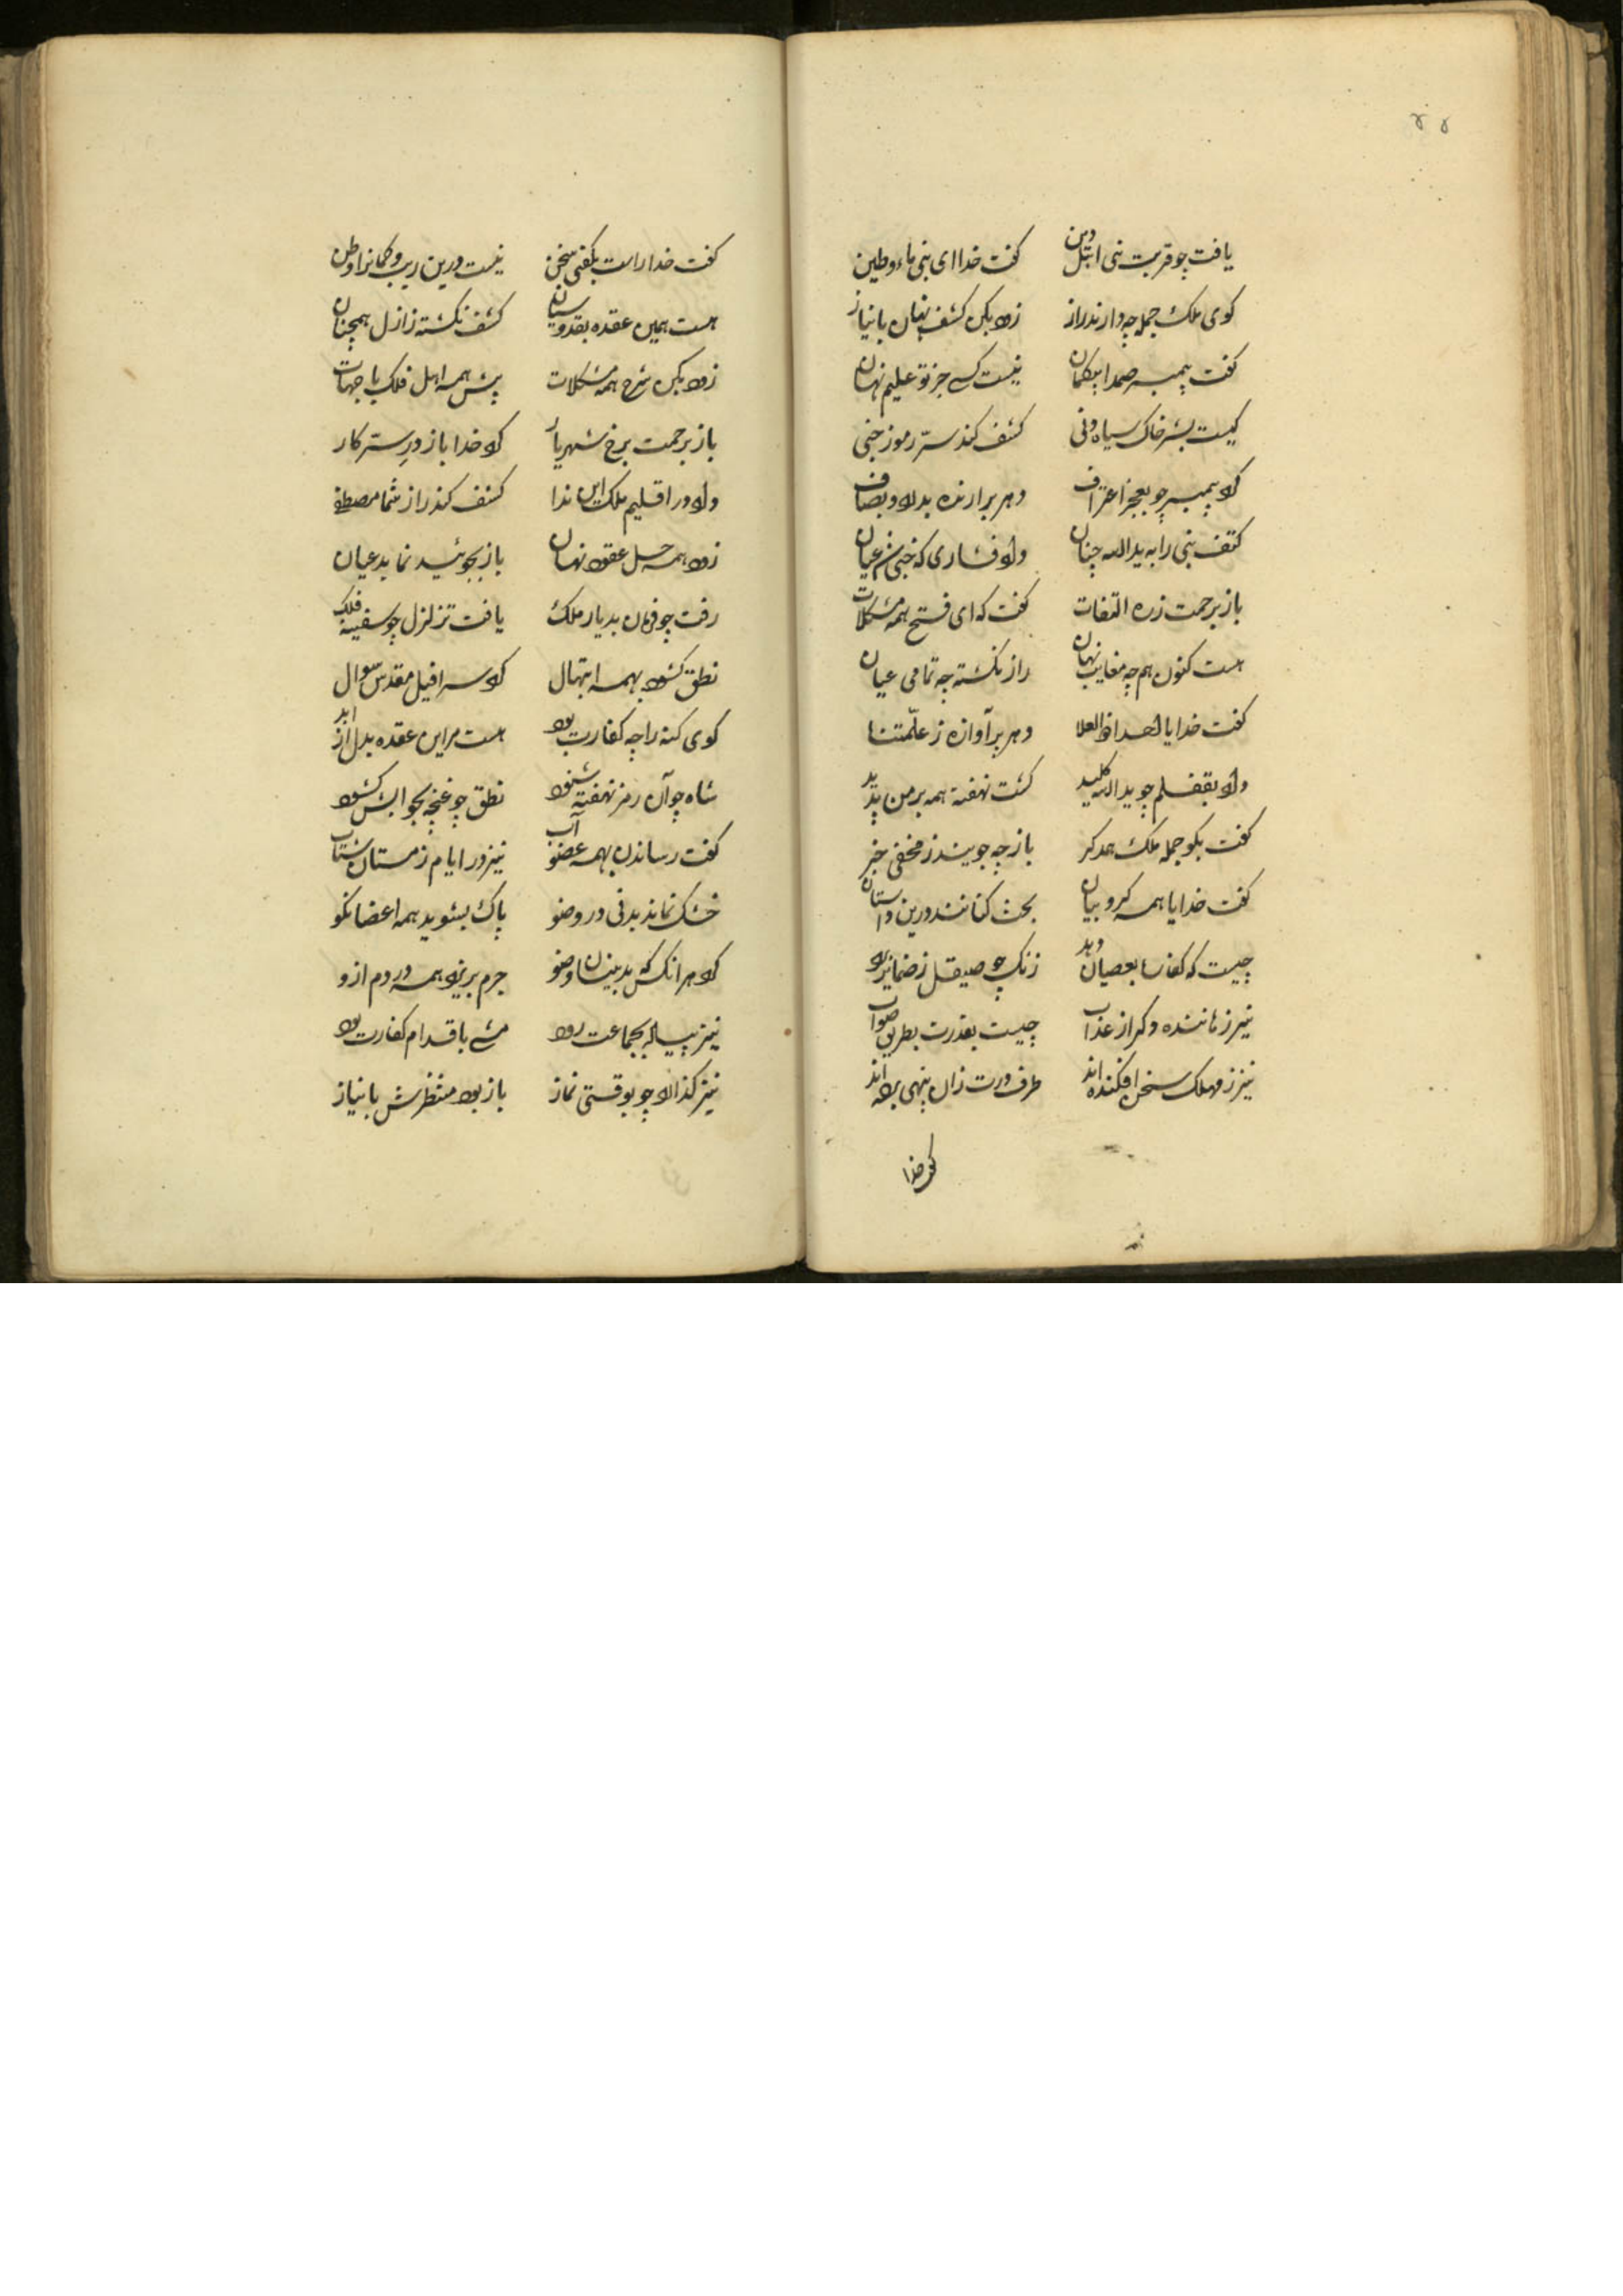 ۴۴
یافت چو قربت نبی ابتل دین    کفت خدا ای نبی ماء و طین
کوی ملک جمله چه دارند راز    زود بکن کشف نهان با نیاز
کفت پیمبر صمدا بیکمان    نیست کسی جز تو علیم نهان
کیست بشر خاک سیاه دنی    کشف کند سرّ رموز خنی
کرد پیمبر چو بعجز اعتراف    دهر برارنده بدلاد و بصاف
کتف نبی را به ید الله چنان    داد فشاری که خبی شد عیان
باز برحمت ز ره التفات    کفت که ای فتح همه مشکلات
هست کنون هم چه مغایب نهان    راز نکشته چه تمامی عیان
کفت خدایا احد ذو العلا    دهر برآوازه ز علّمتنا
داد بقفلم چو ید الله کلید    کشت نهفته همه بر من پدید
کفت بکو جمله ملک همدکر    باز چه جویند ز مخفی خبر
کفت خدایا همه کروبیان    بحث کنانند درین داستان
چیست که کفا بعصیان دهد    زنک چو صیقل ز ضمایر برد
نیز زماننده دکر از عذاب    چیست بقدرت بطریق صواب
نیز ز مهلک سخن افکنده اند    طرف درت زان پنهی برده اند
کفت خدا
کفت خدا راست بکفتی سخن    نیست درین ریب و کمانرا وطن
هست همین عقده بقدوسیان    کشف نکشته ز ازل همچنان
زود بکن شرح همه مشکلات    پیش همه اهل فلک با جهات
باز برحمت برخ شهریار    کرد خدا باز در ستر کار
داد در اقلیم ملک این ندا    کشف کند راز شما مصطفی
زود همه حل عقود نهان    باز بجوئید نماید عیان
رفت چو فرمان بدیار ملک    یافت تزلزل چو سفینه فلک
نطق کشود بهمه ابتهال    کرد سرافیل مقدس سوال
کوی کنه را چه کفارت بود    هست مر این عقده بدل از ابد
شاه چو آن رمز نهفته شنود    نطق چو غنچه بجوابش کشود
کفت رساندن بهمه عضو آب    نیز در ایام زمستان شتاب
خشک نماند بدنی در وضو    پاک بشوید همه اعضا نکو
کرد هر انکس که بدینسان وضو    جرم بریزد همه در دم ازو
نیز پیاده بجماعت رود    مشی باقدام کفارت بود
نیز کذارد چو بوقتی نماز    باز بود منتظرش با نیاز